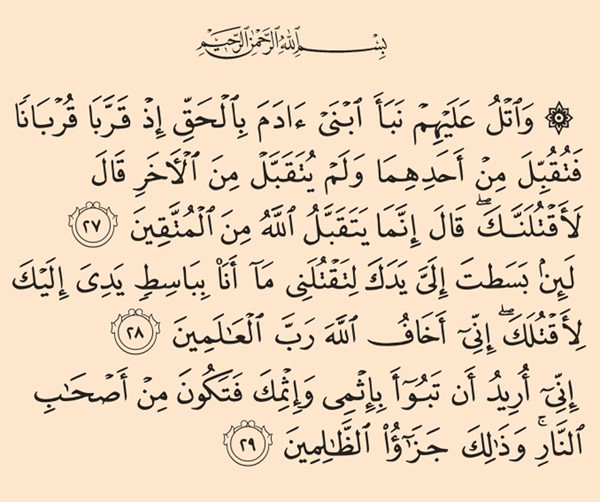 بِسْمِ ٱللَّهِ ٱلرَّحْمَٰنِ ٱلرَّحِيمِ
۞ وَٱتْلُ عَلَيْهِمْ نَبَأَ ٱبْنَىْ ءَادَمَ بِٱلْحَقِّ إِذْ قَرَّبَا قُرْبَانًا
فَتُقُبِّلَ مِنْ أَحَدِهِمَا وَلَمْ يُتَقَبَّلْ مِنَ ٱلْأَخَرِ قَالَ
لَأَقْتُلَنَّكَ ۖ قَالَ إِنَّمَا يَتَقَبَّلُ ٱللَّهُ مِنَ ٱلْمُتَّقِينَ ٢٧
لَئِنۢ بَسَطتَ إِلَىَّ يَدَكَ لِتَقْتُلَنِى مَآ أَنَا۠ بِبَاسِطٍ يَدِىَ إِلَيْكَ
لِأَقْتُلَكَ ۖ إِنِّىٓ أَخَافُ ٱللَّهَ رَبَّ ٱلْعَٰلَمِينَ ٢٨
إِنِّىٓ أُرِيدُ أَن تَبُوٓأَ بِإِثْمِى وَإِثْمِكَ فَتَكُونَ مِنْ أَصْحَٰبِ
ٱلنَّارِ ۚ وَذَٰلِكَ جَزَٰٓؤُا۟ ٱلظَّٰلِمِينَ ٢٩